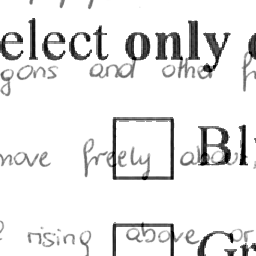 elect only
gons and other
move freely about
rising above or